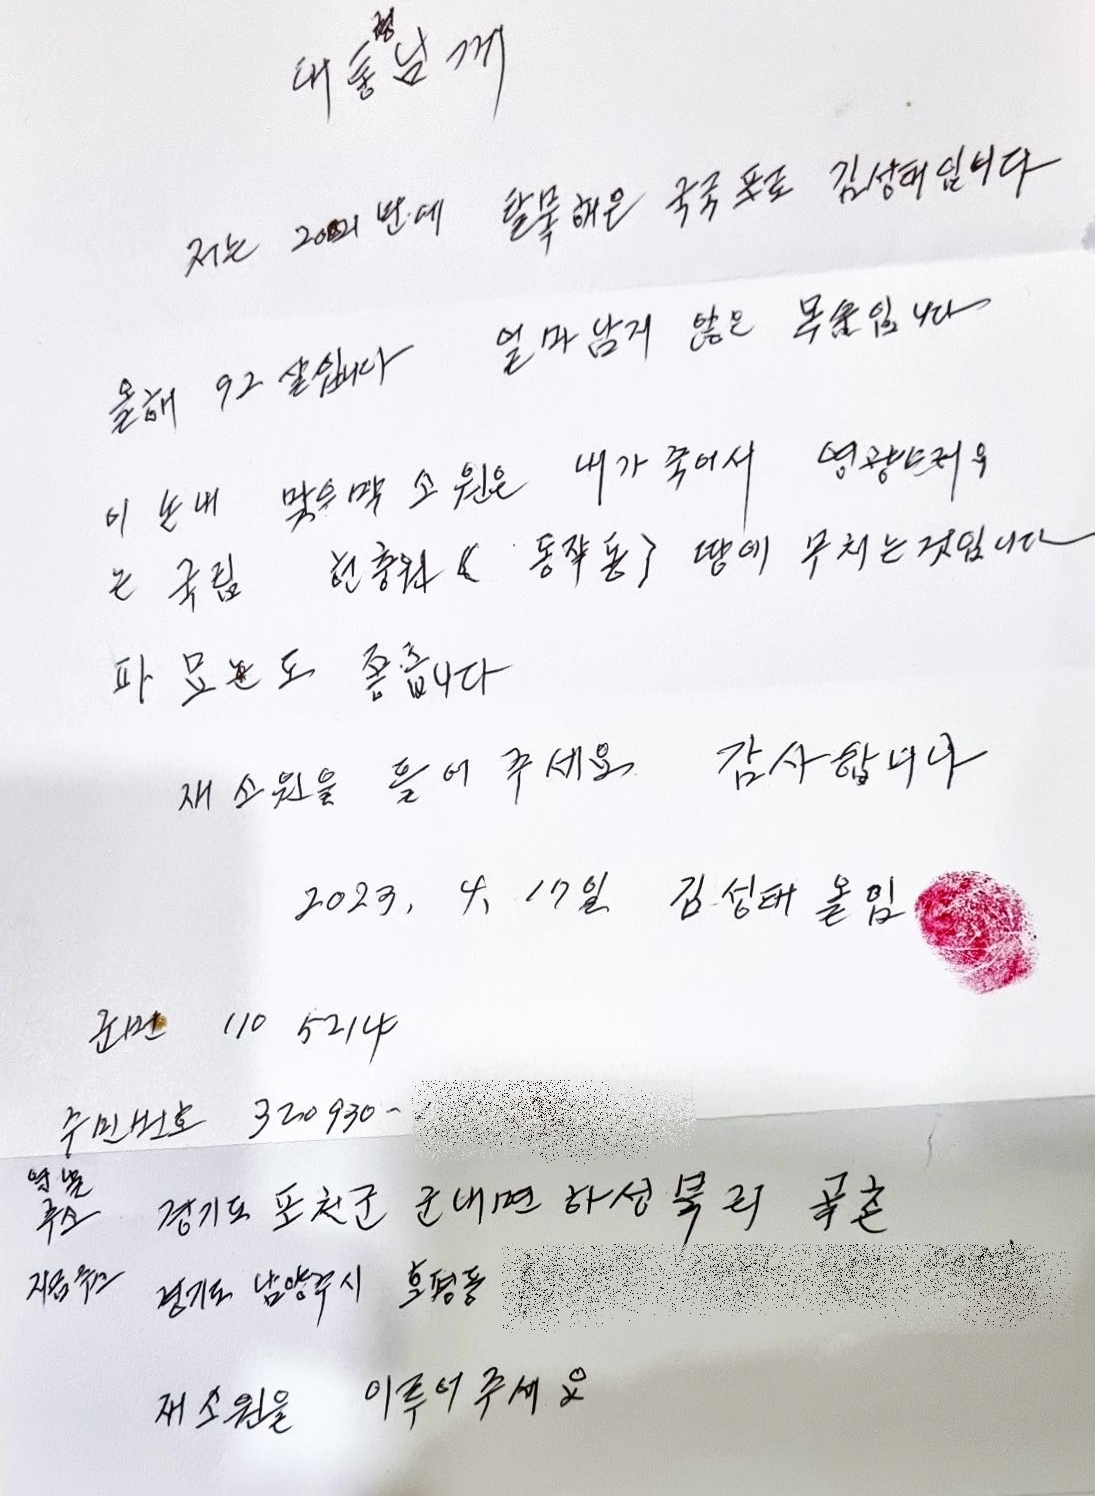 대통령남께
저는 2001년에 탈북해온 국국포로 김성태입니다
올해 92살입니다 얼마남지 않은 목숨입니다
이 눈내 맞으막 소원은 내가 죽어서 영광스러우
는 국립 현충원 ( 동작동) 땅에 무치는것입니다
파묘는도 좋습니다
재소원을 들어 주세요 감사합니다
2023, 4, 17일 김성태 올임
군번 110 5214
주민번호 320930-
옛날
주소 경기도 포천군 군내면 하성북리
지금주소 경기도 남양주시 호평동
재소원을 이루어주세요